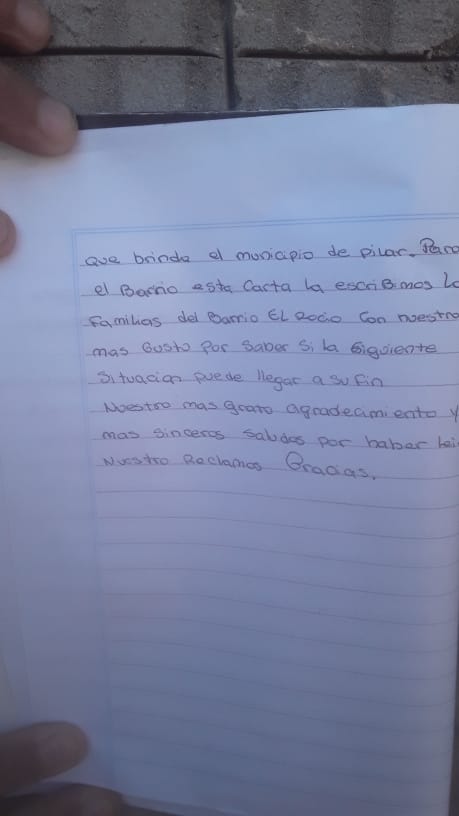 que brinda el municipio de pilar. Para
el Barrio esta Carta la escriBimos
Familias del Barrio EL Rocio Con nuestro
mas Gusto Por Saber Si la Siguiente
Situacion puede llegar a su Fin
Nuestro mas grato agradecimiento y
mas sinceros saludos por haber
Nuestro Reclamos Gracias.